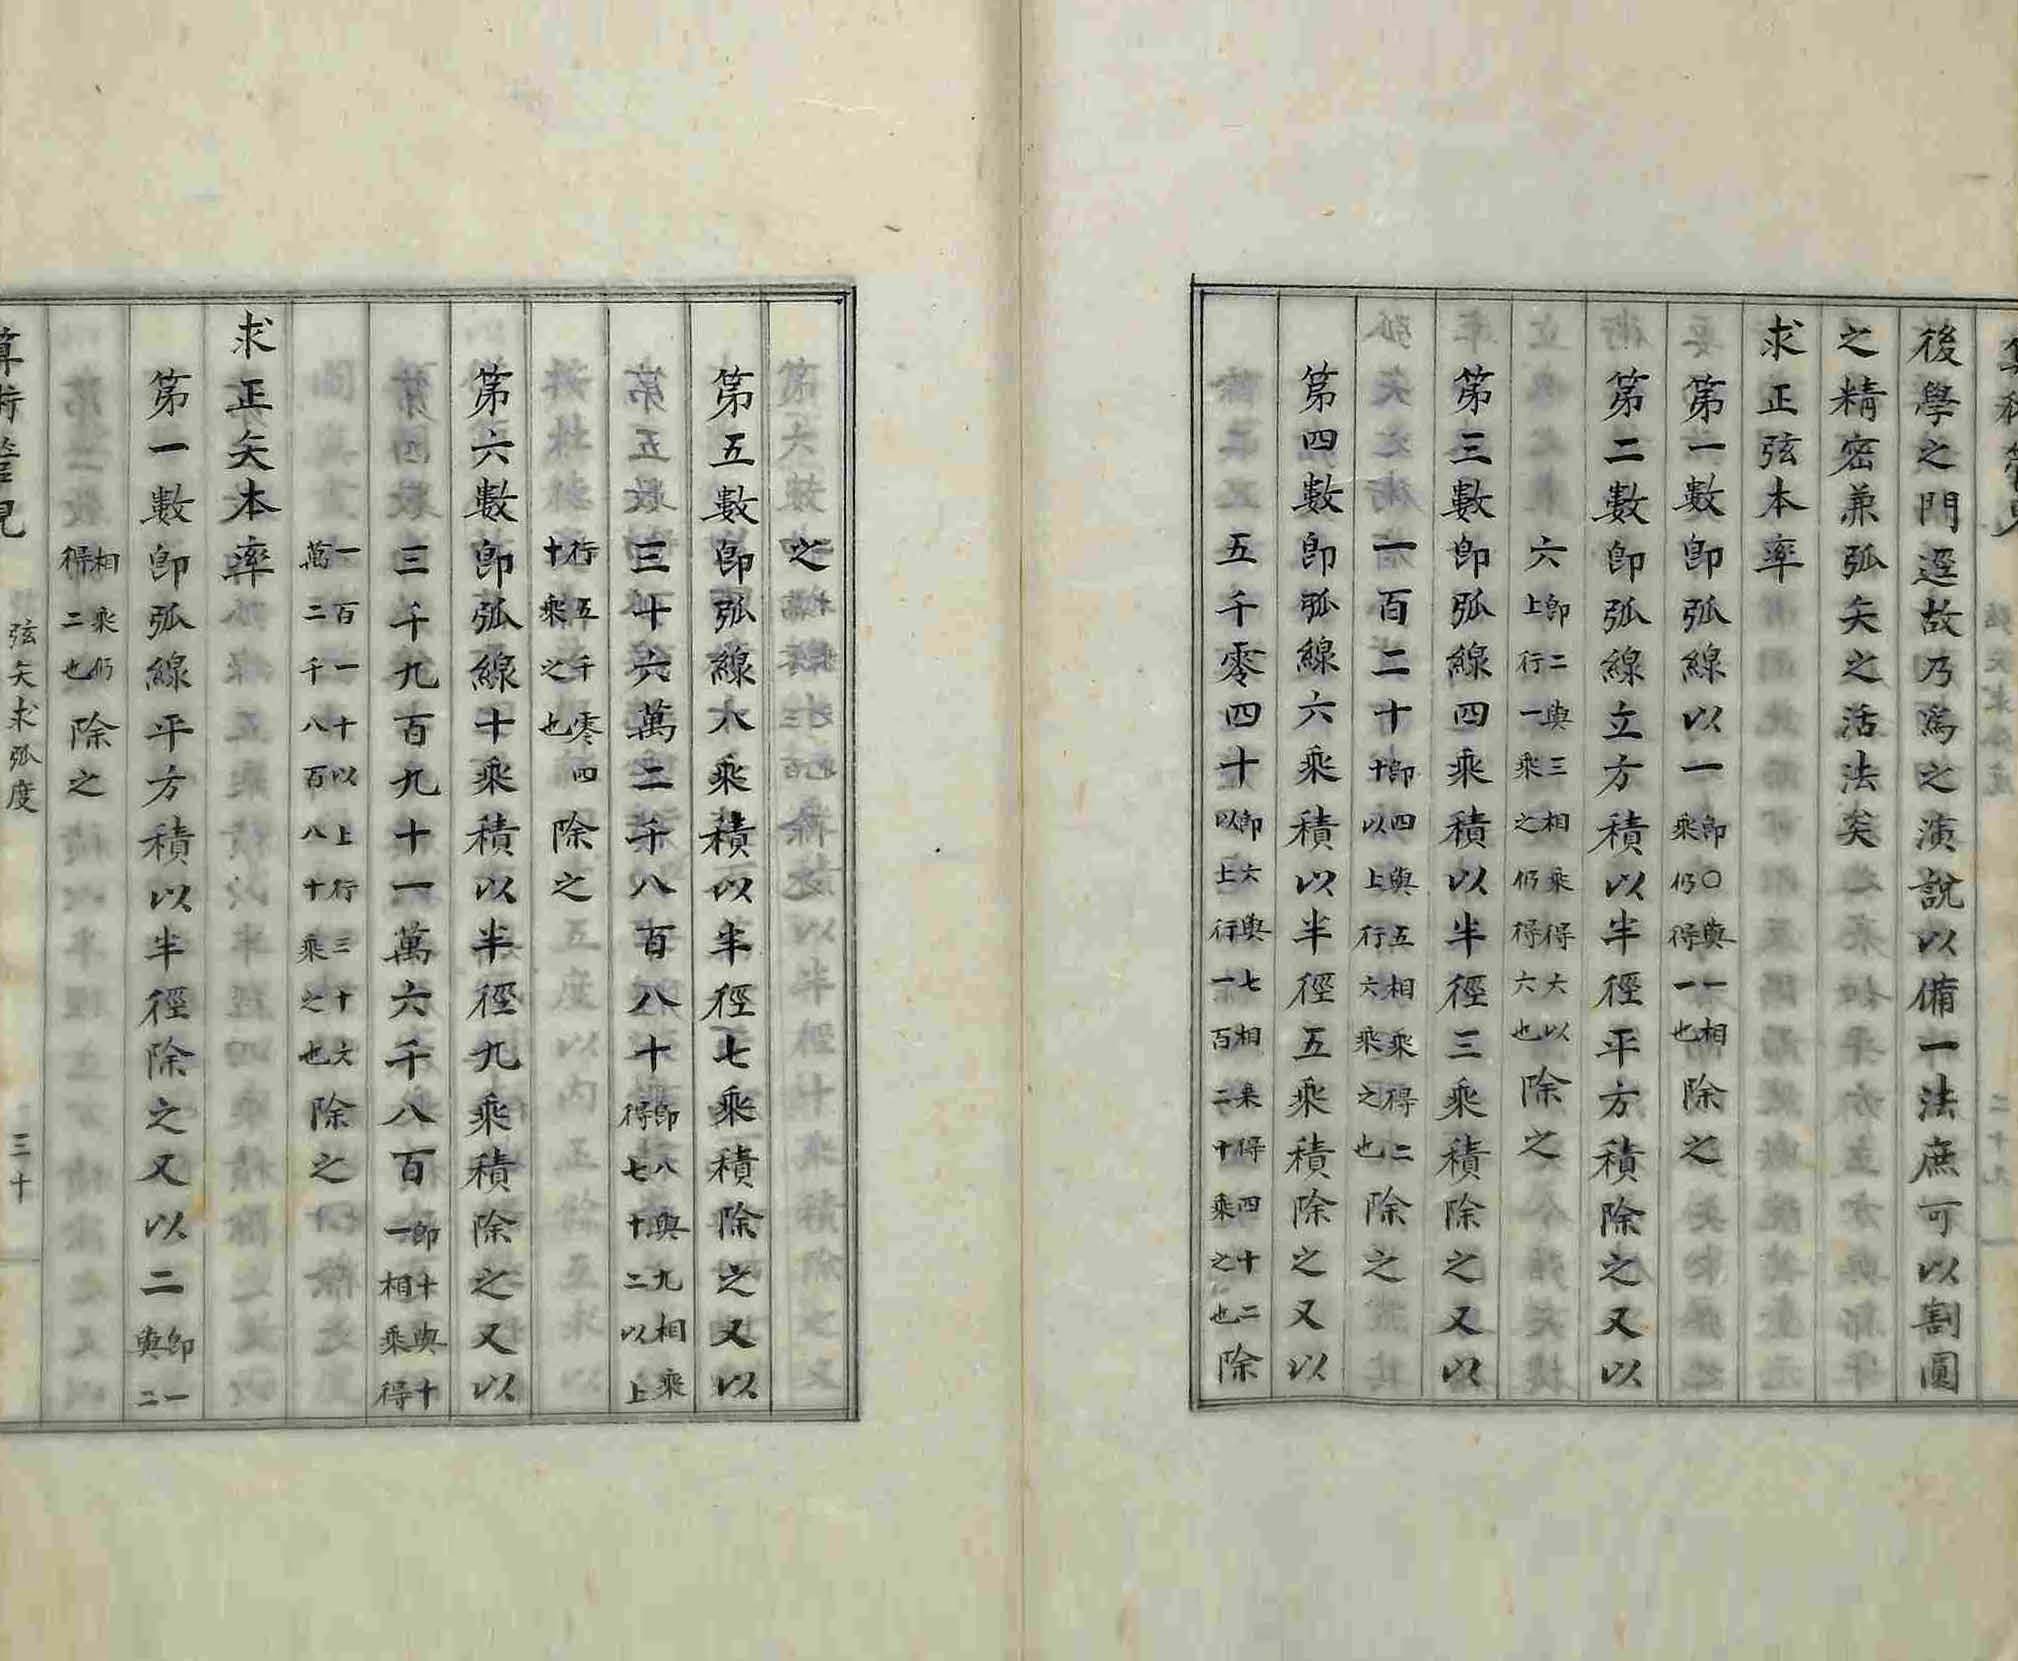 後學之門逕故乃爲之演說以備一法庶可以割圓
之精密兼弧矢之活法矣
求正弦本率
第一數即弧線以一即〇與一相乘仍得一也除之
第二數即弧線立方積以半徑平方積除之又以
六即二與三相乘得六以上行一乘之仍得六也除之
第三數即弧線四乘積以半徑三乘積除之又以
一百二十即四與五相乘得二十以上行六乘之也除之
第四數即弧線六乘積以半徑五乘積除之又以
五千零四十即六與七相乘得四十二以上行一百二十乘之也除
之
第五數即弧線八乘積以半徑七乘積除之又以
三十六萬二千八百八十即八與九相乘得七十二以上
行五千零四十乘之也除之
第六數即弧線十乘積以半徑九乘積除之又以
三千九百九十一萬六千八百即十與十一相乘得
一百一十以上行三十六萬二千八百八十乘之也除之
求正矢本率
第一數即弧線平方積以半徑除之又以二即一與二
相乘仍得二也除之
算術管見
弦矢求弧度
三十